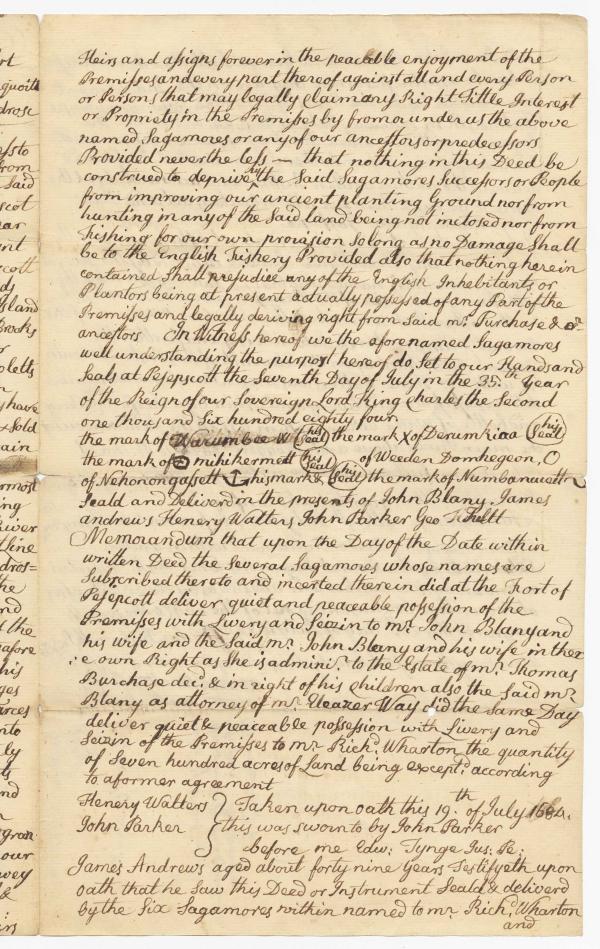 Heirs and assigns forever in the peacable enjoyment of the
Premisses and every part thereof against all and every Person
or Persons that may legally claim any Right Tittle Interest
or Propriety in the Premisses by from or under us the above
named Sagamores or any of our ancestors or predecessors
Provided neverthe less — that nothing in this Deed be
construed to deprive the Said Sagamores Successors or People
from improving our ancient planting Ground nor from
hunting in any of the Said land being not inclosed nor from
Fishing for our own provision So long as no Damage Shall
be to the English Fishery Provided also that nothing herein
contained Shall prejudice any of the English Inhebitants or
Plantors being at present actually possessed of any Part of the
Premisses and legally deriving right from Said mr. Purchase & or
ancestors In Witness hereof we the afore named Sagamores
well understanding the purport hereof do Set to our Hands and
Seals at Pejepscott the Seventh Day of July in the 35th Year
of the Reign of our Sovereign Lord King Charles the Second
one thousand Six hundred eighty four
the mark of Warumbee W his Seal the mark X of Derumkiaa his Seal
the mark of mihikermett his Seal of Weeden Domhegeon, O
of Nehonongassett his mark & his Seal the mark of Numbanuett
Seald and Deliverd in the presents of John Blany, James
andrews Henery Walters John Parker Geo
Memorandum that upon the Day of the Date within
written Deed the Several Sagamores whose names are
Subscribed thereto and incerted therein did at the Fort of
Pejepcott deliver quiet and peaceable possession of the
Premisses with Livery and Seizin to mr. John Blany and
his wife and the Said mr. John Blany and his wife in ther
e own Right as She is adminis.r to the Estate of mr. Thomas
Burchase decd. & in right of his Children also the Said mr.
Blany as attorney of mr. Eleazer Way did the Same Day
deliver quiet & peaceable possession with Livery and
Seizin of the Premisses to mr. Richd. Wharton the quantity
of Seven hundred acres of Land being exceptd. according
to a former agreement
Henery Walters } Taken upon oath this 19th of July 1684.
John Parker } this was sworn to by John Parker
before me Edw: Tynge Jus: Pe:
James Andrews aged about forty nine years Testifyeth upon
oath that he Saw this Deed or Instrument Seald & deliverd
by the Six Sagamores within named to mr. Richd. Wharton
and